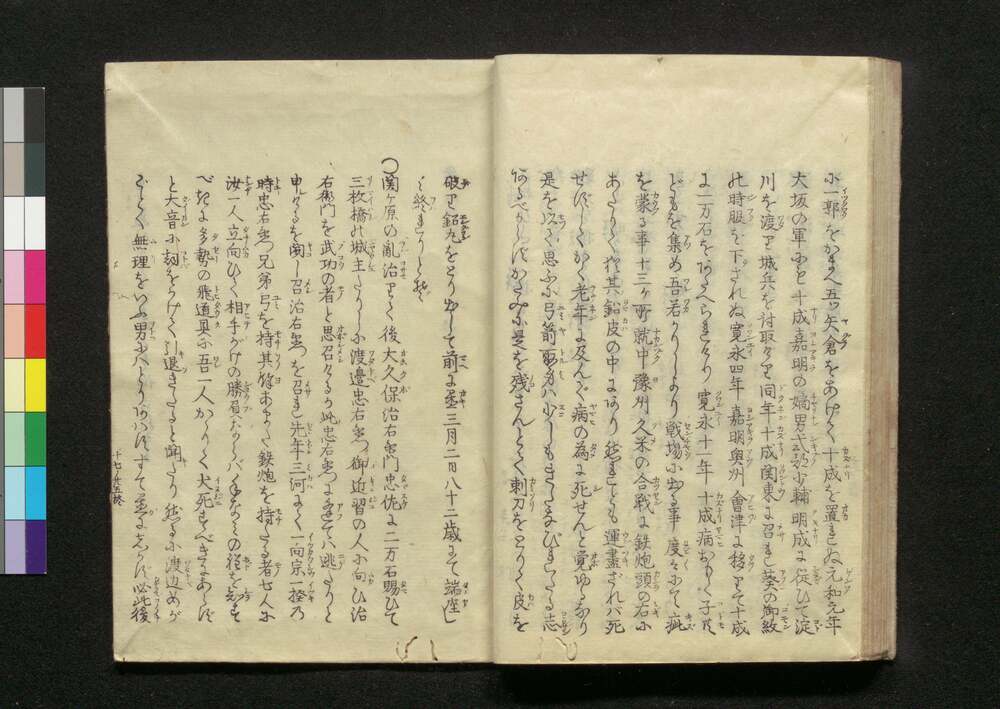 小一郭をかまへ五ツ矢倉をあげて十成を置きぬ元和元年
大坂の軍にも十成嘉明の嫡男式部少輔明成に従ひて淀
川を渡り城兵を討取り同年十成関東に召され葵の御紋
の時服を下されぬ寛永四年嘉明奥州會津に移りて十成
に一万石をあたへらる寛永十一年十成病おもく子共
どもを集め吾若かりしより戦場に出る事度々にて疵
を蒙る事十三ヶ所就中豫州久米の合戦に鉄炮頭の右に
あたりて其鉛皮の中にあり然れども運盡ざれバ死
せずしてかく老年に及んで病の為に死せんと覚ゆるなり
是を以て思ふに弓箭取ものハ少しもきたなびれたる志
あるべからずかたみに是を残さんとて刺刀をとりて皮を
破り鉛丸をとり出して前に置三月二日八十二歳にて端座し
て終りしとぞ
〇関ヶ原の亂治りて後大久保治右衛門忠佐に二万石賜ひて
三枚橋の城主たりしに渡邉忠右衛門御近習の人に向ひ治
右衛門を武功の者と思召るゝか此忠右衛門に逢てハ逃たりと
申けるを聞し召治右衛門を召され先年三河にて一向宗一揆の
時忠右衛門兄弟弓を持其餘あまた鉄炮を持たる者七人に
汝一人立向ひて相手がけの勝負ならバ
べきに多勢の飛道具に吾一人かゝりて犬死すべきにあらず
と大音に詞をかけて引退きたると聞たり然るに渡辺めが
ごとく無理をいふ男ハとりあハずすて置にしかず必此後